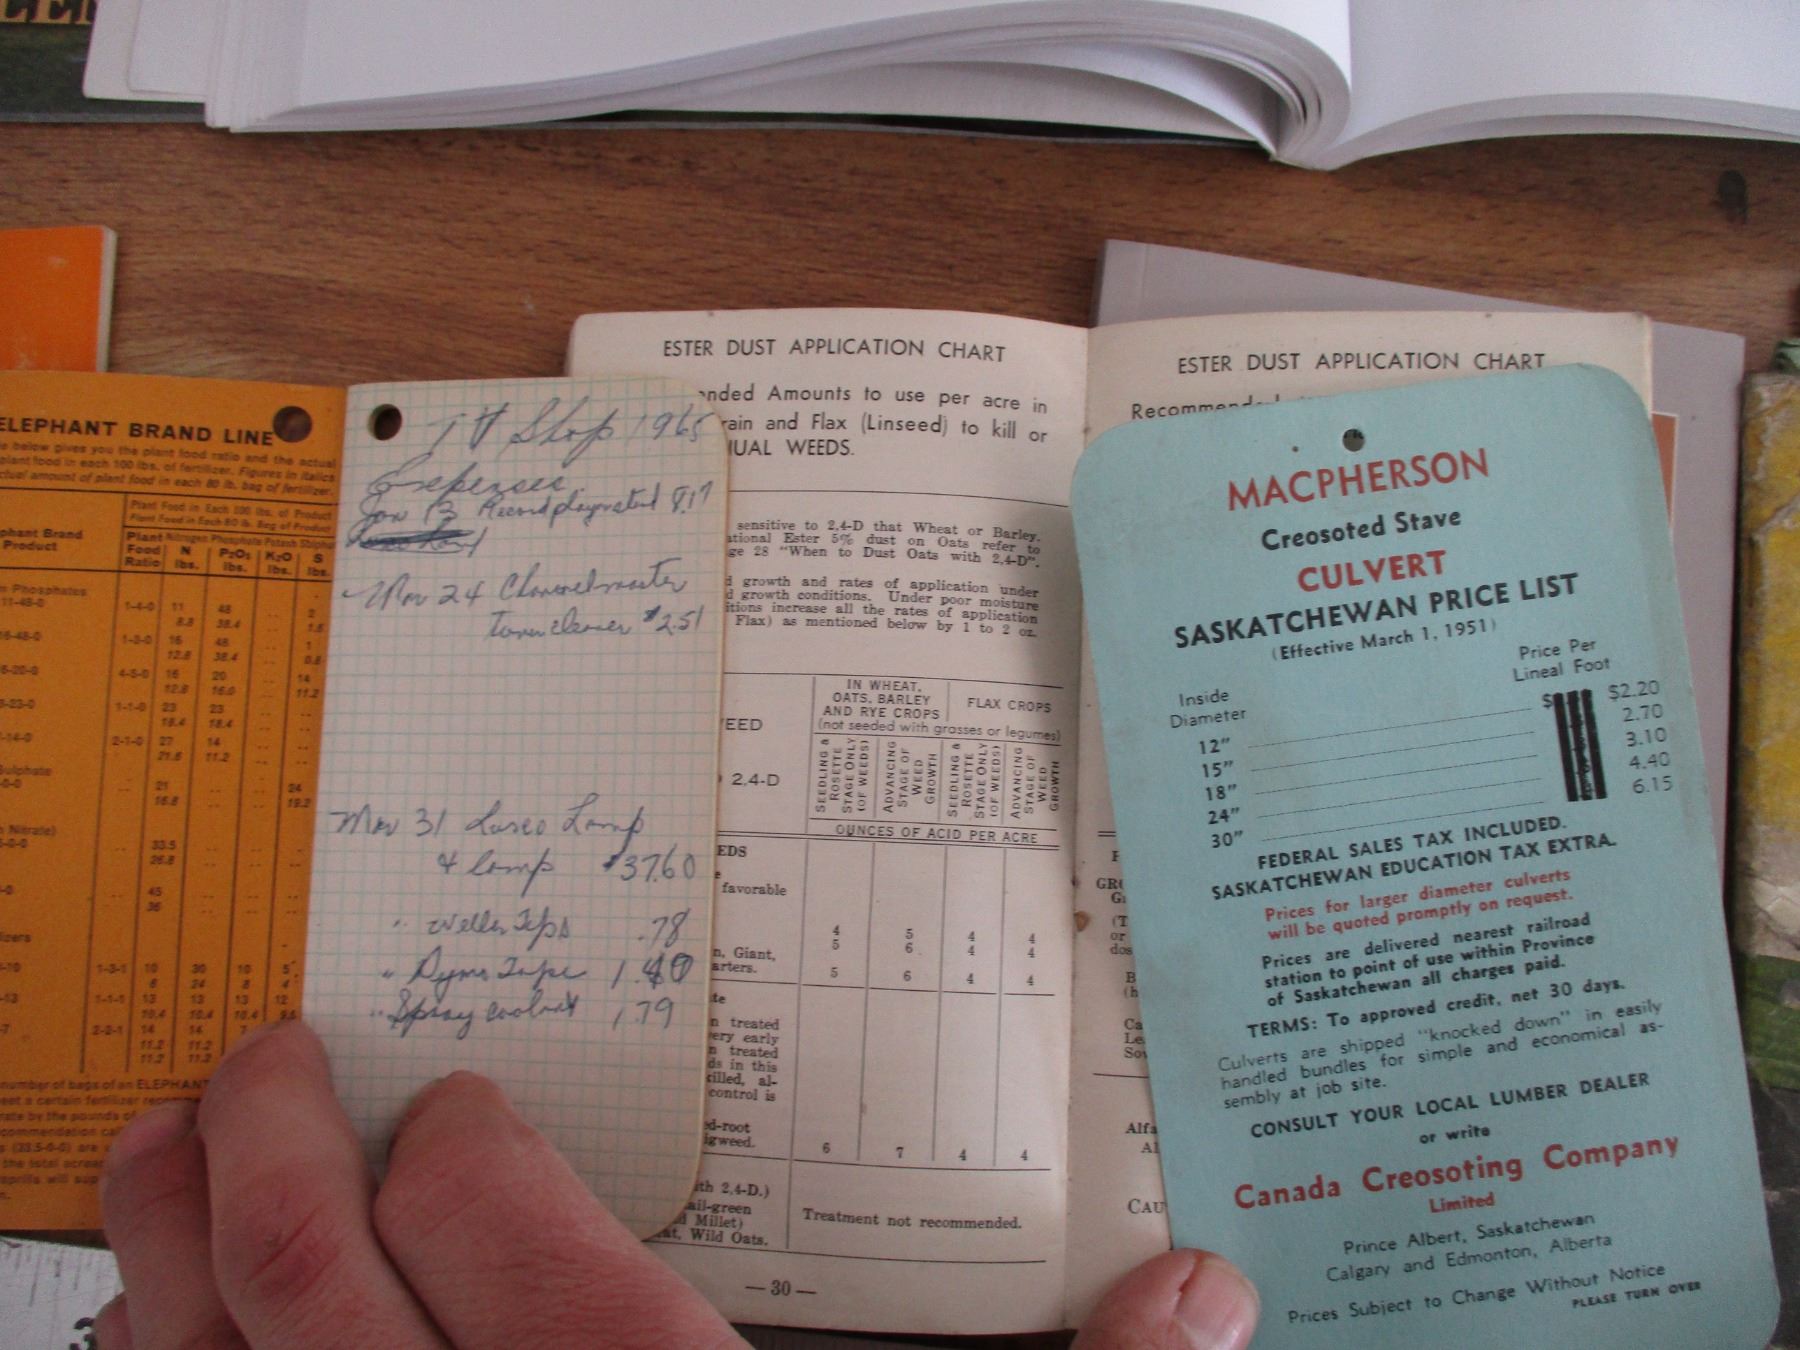 ELEPHANT BRAND LINE
below gives you the plant food ratio and the actual
plant food in each 100 lbs. of fertilizer. Figures in italics
actual amount of plant food in each 80 lb. bag of fertilizer.
Plant Food in Each 100 lbs. of Product
Plant Food in Each 80 lb. Bag of Product
Brand
Product
Plant Food Ratio
Nitrogen Phosphate Potash Sulphur
N lbs.
P₂O₅ lbs.
K₂O lbs.
S lbs.
Phosphates
11-48-0 1-4-0 11 48 .. 2
8.8 38.4 .. 1.6
16-48-0 1-3-0 16 48 .. 1
12.8 38.4 .. 0.8
16-20-0 4-5-0 16 20 .. 14
12.8 16.0 .. 11.2
23-23-0 1-1-0 23 23
18.4 18.4
14-0 2-1-0 27 14
21.6 11.2
Sulphate
21 .. .. 24
16.8 .. .. 19.2
Nitrate)
33.5
26.8
45
36
1-3-1 10 30 10 5
8 24 8 4
1-1-1 13 13 13 12
10.4 10.4 10.4 9.6
2-2-1 14 14 7
11.2 11.2
11.2 11.2
number of bags of an ELEPHANT
meet a certain fertilizer
rate by the pounds
(33.5-0-0) are
the total
TV Shop 1965
Expenses
Jan 13 Record player 8.17
Mar 24 Channelmaster
tuner cleaner $2.51
Mar 31 Lamp
4 lamp $37.60
" Weller Tips .78
" Dymo Tape 1.40
" Spray coolant 1.79
ESTER DUST APPLICATION CHART
Amounts to use per acre in
and Flax (Linseed) to kill or
WEEDS.
sensitive to 2,4-D that Wheat or Barley.
Ester 5% dust on Oats refer to
28 "When to Dust Oats with 2,4-D".
growth and rates of application under
growth conditions. Under poor moisture
increase all the rates of application
Flax) as mentioned below by 1 to 2 oz.
IN WHEAT,
OATS, BARLEY
AND RYE CROPS
FLAX CROPS
(not seeded with grasses or legumes)
WEED
2,4-D
SEEDLING & ROSETTE STAGE ONLY (OF WEEDS)
ADVANCING STAGE OF WEED GROWTH
SEEDLING & ROSETTE STAGE ONLY (OF WEEDS)
ADVANCING STAGE OF WEED GROWTH
OUNCES OF ACID PER ACRE
favorable
4 5 4 4
5 6 4 4
Giant,
5 6 4 4
treated
early
treated
in this
al-
control is
6 7 4 4
with 2,4-D.)
Millet)
Wild Oats.
Treatment not recommended.
— 30 —
ESTER DUST APPLICATION CHART
MACPHERSON
Creosoted Stave
CULVERT
SASKATCHEWAN PRICE LIST
(Effective March 1, 1951)
Inside
Diameter
Price Per
Lineal Foot
12" $2.20
15" 2.70
18" 3.10
24" 4.40
30" 6.15
FEDERAL SALES TAX INCLUDED.
SASKATCHEWAN EDUCATION TAX EXTRA.
Prices for larger diameter culverts
will be quoted promptly on request.
Prices are delivered nearest railroad
station to point of use within Province
of Saskatchewan all charges paid.
TERMS: To approved credit, net 30 days.
Culverts are shipped "knocked down" in easily
handled bundles for simple and economical as-
sembly at job site.
CONSULT YOUR LOCAL LUMBER DEALER
or write
Canada Creosoting Company
Limited
Prince Albert, Saskatchewan
Calgary and Edmonton, Alberta
Prices Subject to Change Without Notice
PLEASE TURN OVER